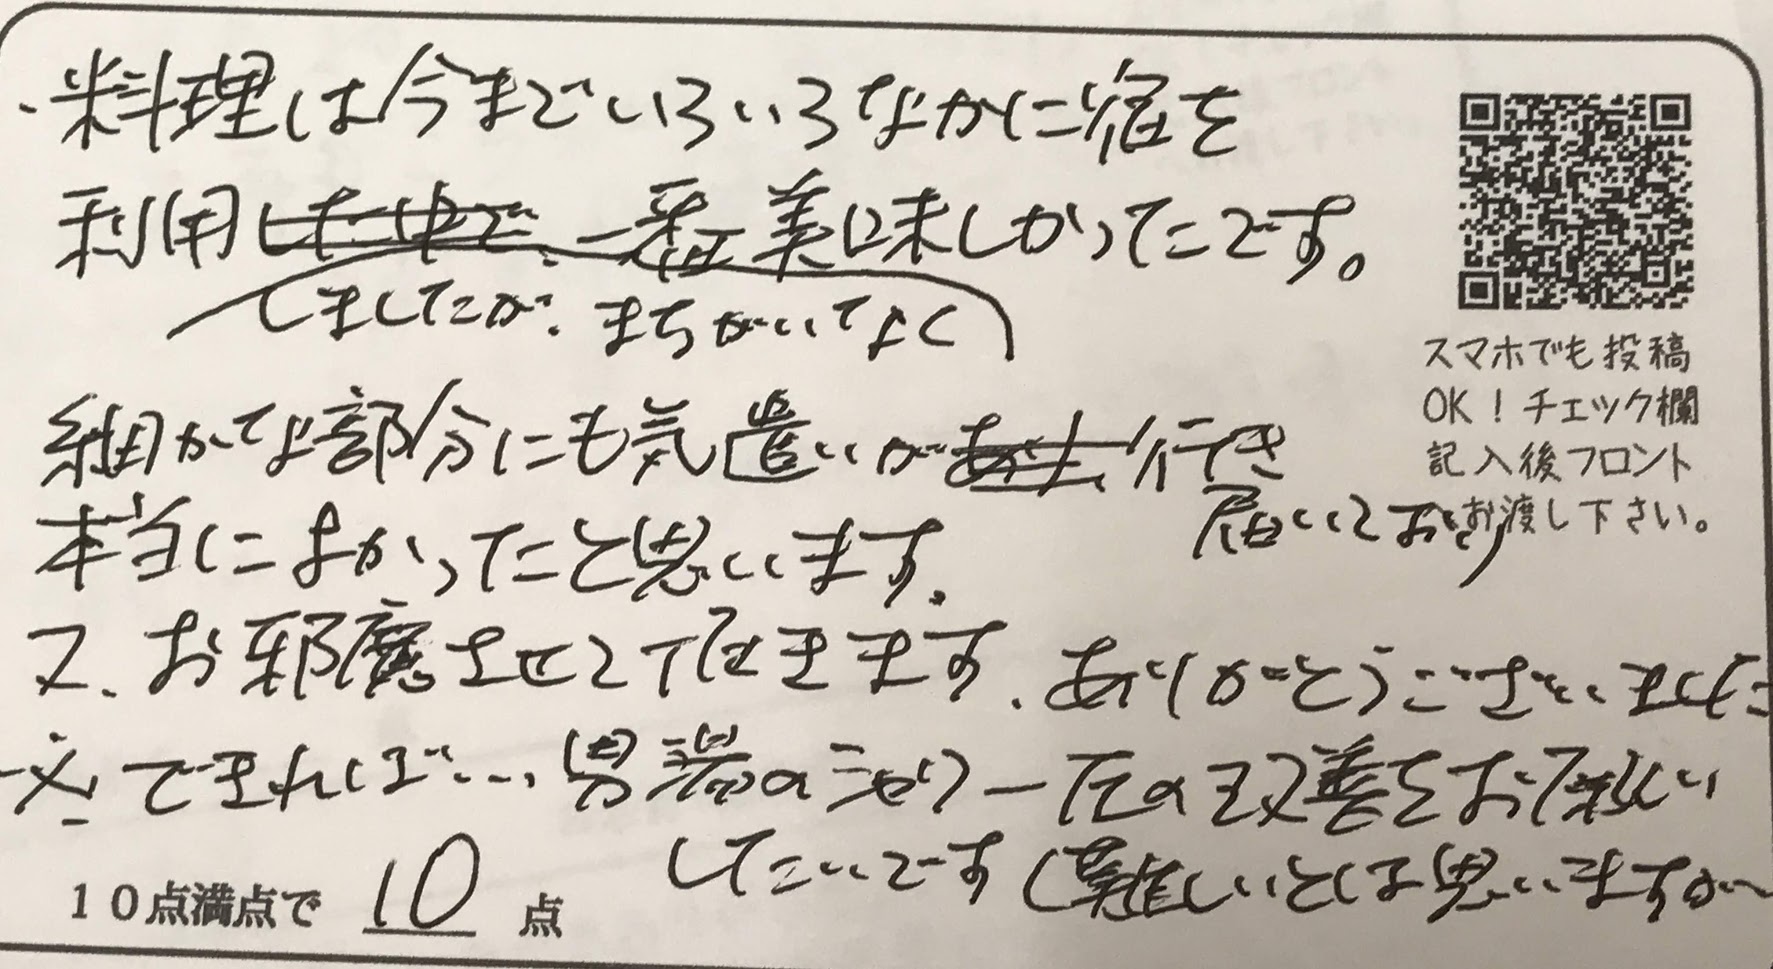 ・料理は今までいろいろなかに宿を
利用 一番美味しかったです。
しましたが、まちがいなく
細かな部分にも気遣いが 行き
届いており
本当によかったと思います。
又、お邪魔させて頂きます。ありがとうございました
※できれば… 男湯のシャワー圧の改善をお願い
したいです(難しいとは思いますが〜
10点満点で 10 点
スマホでも投稿
OK！チェック欄
記入後フロント
お渡し下さい。